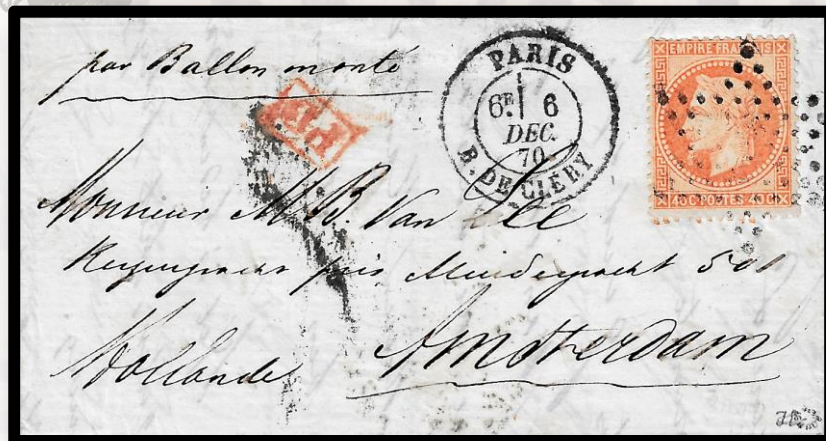 par Ballon monté
PARIS
6E 6
DEC.
70
R. DE CLÉRY
EMPIRE FRANÇAIS
40C POSTES 40C
P.D.
Monsieur M. B. Van Lee
près Muidergracht 501
Hollande Amsterdam